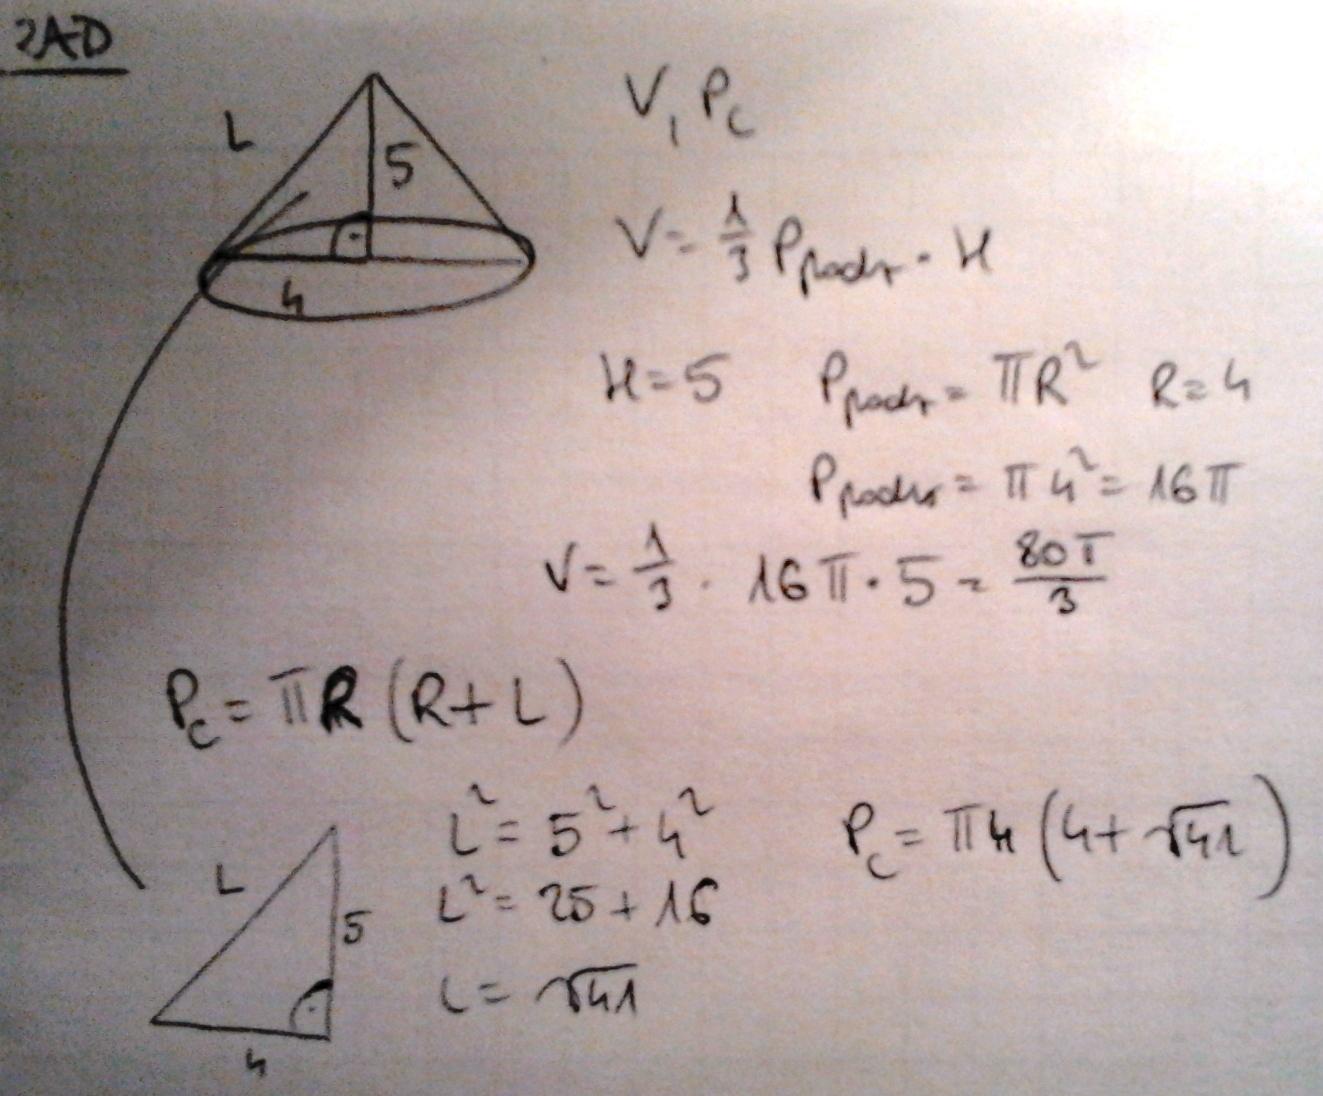 ZAD
L
5
4
V, Pc
V = 1/3 Ppodst · H
H = 5 Ppodst = πR² R = 4
Ppodst = π4² = 16π
V = 1/3 · 16π · 5 = 80π/3
Pc = πR (R + L)
L
5
4
L² = 5² + 4²
L² = 25 + 16
L = √41
Pc = π4 (4 + √41)